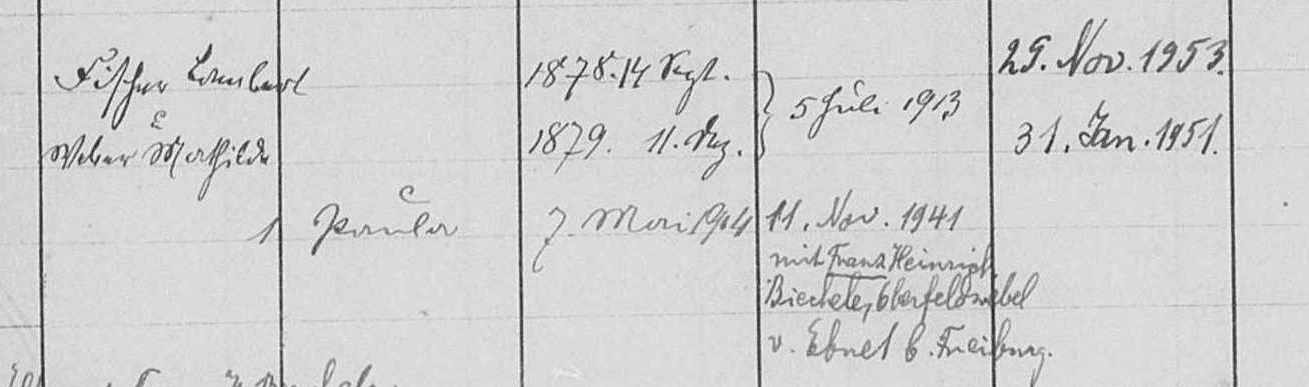 Fischer Lambert 1878. 14 Sept. 29. Nov. 1953.
5 Juli 1913
Weber Mathilde 1879. 11. Dez. 31. Jan. 1951.
1 Paula 7. Mai 1914 11. Nov. 1941
mit Franz Heinrich
Biechele, Oberfeldwebel
v. Ebnet b. Freiburg.